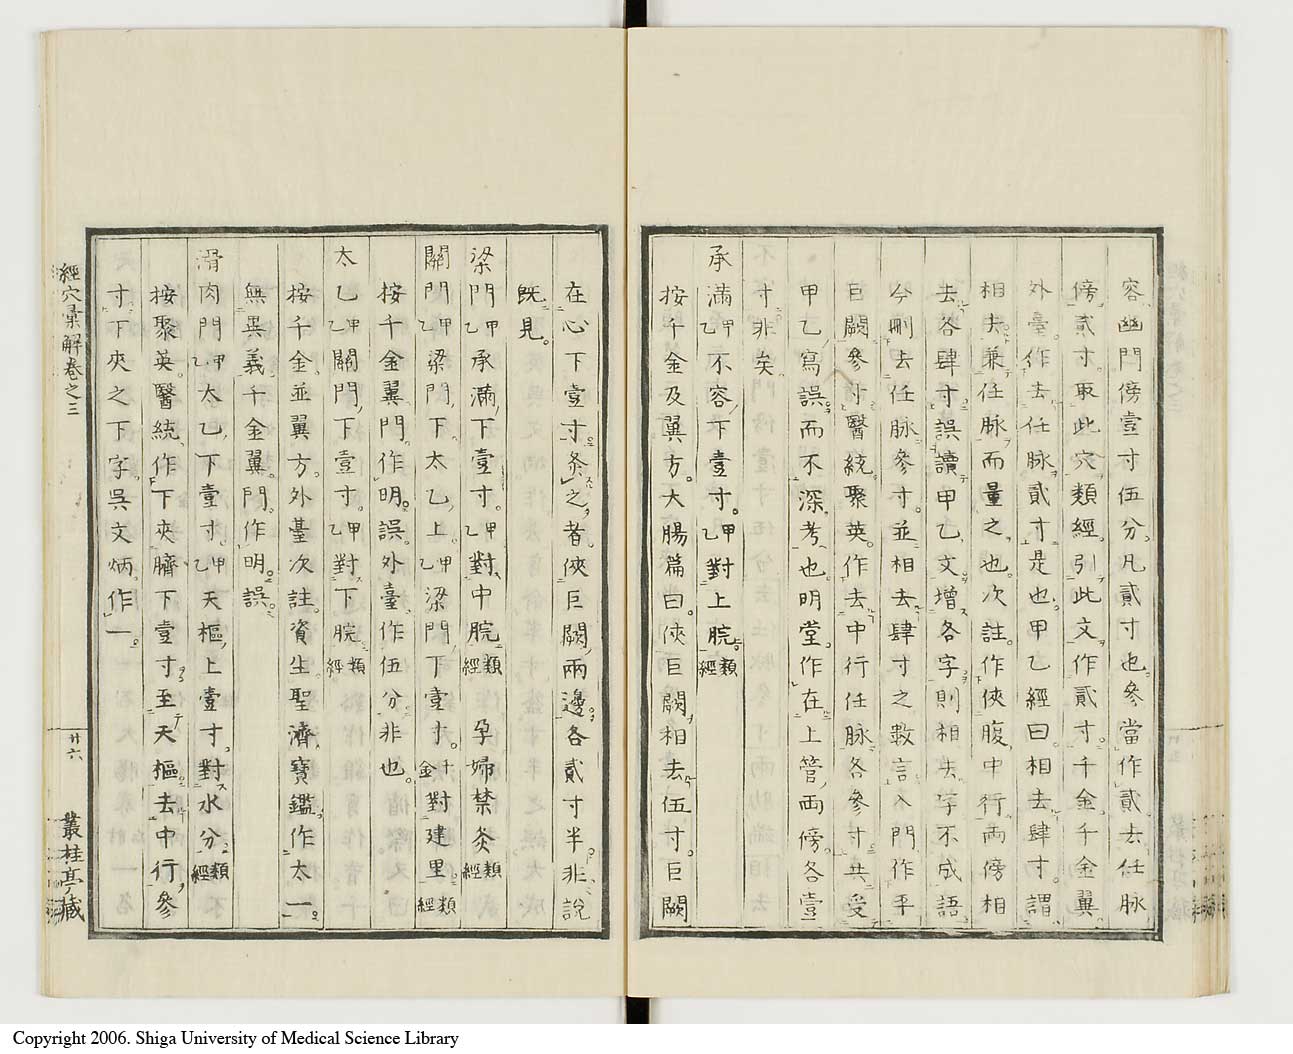 容幽門傍壹寸伍分凡貳寸也參當作貳去任脉
傍貳寸取此穴類經引此文作貳寸千金千金翼
外臺作去任脉貳寸是也甲乙經曰相去肆寸謂
相夾兼任脉而量之也次註作俠腹中行兩傍相
去各肆寸誤讀甲乙文增各字則相夾字不成語
今刪去任脉參寸並相去肆寸之數言入門作平
巨闕參寸醫統聚英作去中行任脉各參寸共受
甲乙寫誤而不深考也明堂作在上管兩傍各壹
寸非矣
承滿甲乙不容下壹寸甲乙對上脘類經
按千金及翼方大腸篇曰俠巨闕相去伍寸巨闕
在心下壹寸灸之者俠巨闕兩邊各貳寸半非說
既見
梁門甲乙承滿下壹寸甲乙對中脘類經孕婦禁灸類經
關門甲乙梁門下太乙上甲乙梁門下壹寸千金對建里類經
按千金翼門作明誤外臺作伍分非也
太乙甲乙關門下壹寸甲乙對下脘類經
按千金並翼方外臺次註資生聖濟寶鑑作太一
無異義千金翼門作明誤
滑肉門甲乙太乙下壹寸甲乙天樞上壹寸對水分類經
按聚英醫統作下夾臍下壹寸至天樞去中行參
寸下夾之下字吳文炳作一
經穴彙解卷之三
廿六
叢桂亭藏
Copyright 2006. Shiga University of Medical Science Library